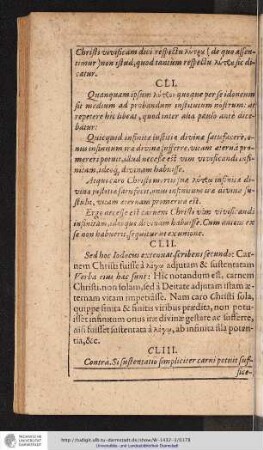 Christi vivificam dici respectu λύτρυ (de quo assen-
timur) non istud, quod tantùm respectu λύτρυ sic di-
catur.
CLI.
Quanquam ipsum λύτρον quoque per se idoneum
sit medium ad probandum institutum nostrum: ut
repetere hic libeat, quod inter alia paulò antè dice-
batur:
Quicquid infinitæ justitiæ divinæ satisfacere, o-
nus infinitum iræ divinæ sufferre, vitam æternā pro-
mereri potuit, illud necesse est vim vivificandi, infi-
nitam, ideoq; divinam habuisse.
Atqui caro Christi mortis suæ λύτρῳ infinitæ di-
vinæ justitiæ satisfecit, onus infinitum iræ divinæ su-
stulit, vitam æternam promerita est.
Ergò necesse est carnem Christi vim vivificandi
infinitam, ideoque divinam habuisse. Cum unicus ex
se non habuerit, sequitur ut ex unione.
CLII.
Sed hoc Iudæus extenuat scribens secundò: Car-
nem Christi fuisse à λόγῳ adjutam & sustentatam.
Verba ejus hæc sunt: Hîc notandum est, carnem
Christi non solam, sed à Deitate adjutam istam æ-
ternam vitam impetrâsse. Nam caro Christi sola,
quippe finita & finitis viribus prædita, non potu-
isset infinitum onus iræ divinæ gestare ac sufferre,
nisi fuisset sustentata à λόγῳ, ab infinita sua poten-
tia, &c.
CLIII.
Contrà. Si sustentatio simpliciter carni potuit suf-
fice-
http://tudigit.ulb.tu-darmstadt.de/show/W-1432-2/0178
Universitäts- und Landesbibliothek Darmstadt